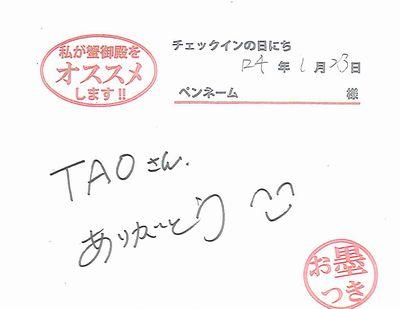 私が蟹御殿を
オススメ
します!!
チェックインの日にち
24年1月23日
ペンネーム 様
TAOさん.
ありがとう
お墨
つき